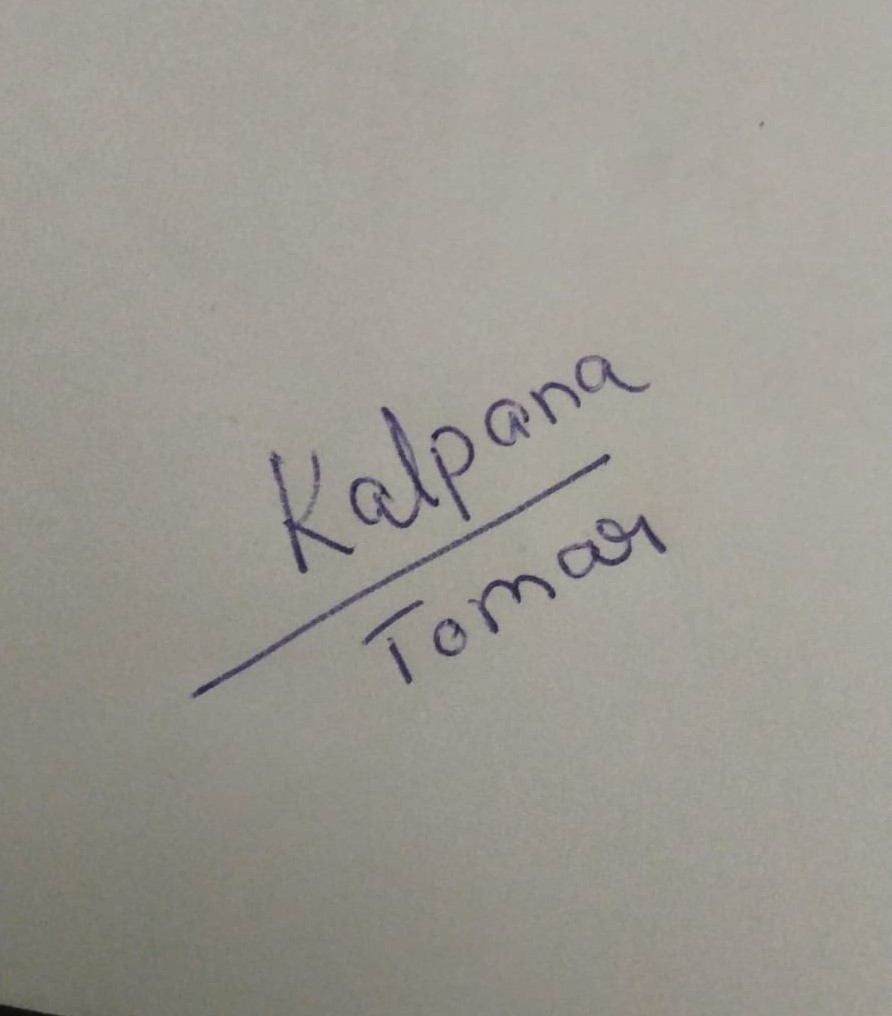 Kalpana
Tomar